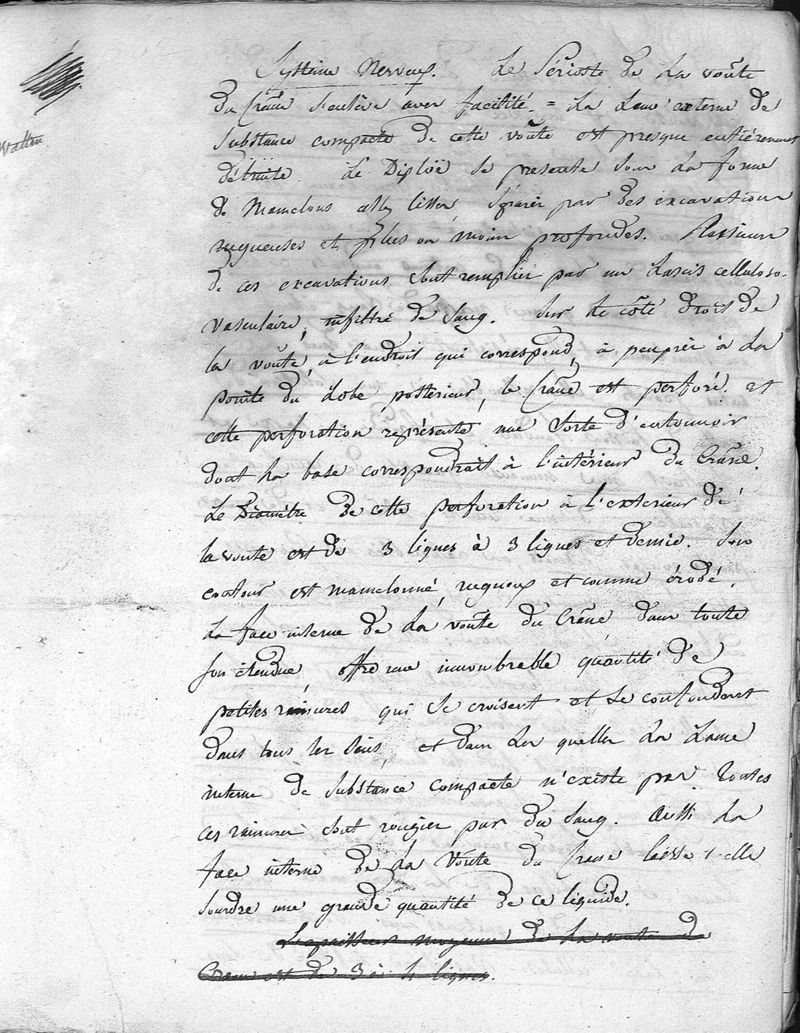 Système Nerveux. Le Périoste de la voûte
du Crâne s'enlève avec facilité. = La Lame externe de
Substance compacte de cette voûte est presque entièrement
détruite. Le Diploë se presente sous la forme
de Mamelons assez lisses séparés par des excavations
rugueuses et plus ou moins profondes. Plusieurs
de ces excavations sont remplies par un lascis celluloso-
vasculaire, infiltré de Sang. Sur le côté droit de
la voûte, à l'endroit qui correspond, à peuprès à la
pointe du Lobe posterieur, le Crâne est perforé, et
cette perforation représente une sorte d'entonnoir
dont la base correspondrait à l'intérieur du Crâne.
Le Diamètre de cette perforation à l'exterieur de
la voute est de 3 lignes à 3 lignes et demie. Son
contour est mamelonné, rugueux et comme érodé.
La face interne de la voûte du Crâne dans toute
son étendue offre une innombrable quantité de
petites rainures qui se croisent et se confondent
dans tous les sens, et dans les quelles la Lame
interne de substance compacte n'existe pas. Toutes
ces rainures sont rougies par du Sang. Aussi la
face interne de la Voûte du Crane laisse t-elle
sourdre une grande quantité de ce liquide.
L'epaisseur moyenne de la voute du
Crane est de 3 à 4 lignes.